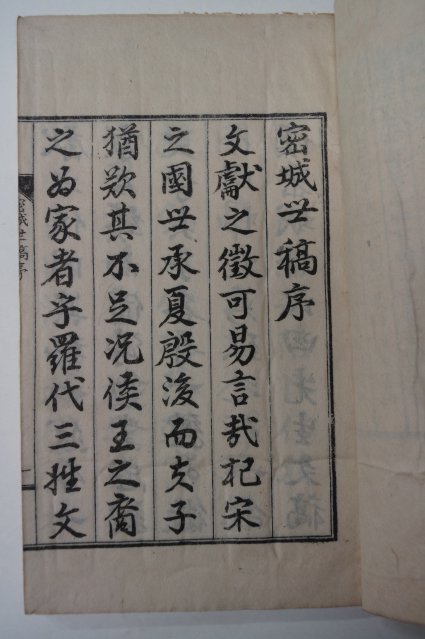 密城世稿序
文獻之徵可易言哉杞宋
之國世承夏殷後而夫子
猶歎其不足況侯王之裔
之为家者乎羅代三姓文
密城世稿序
一